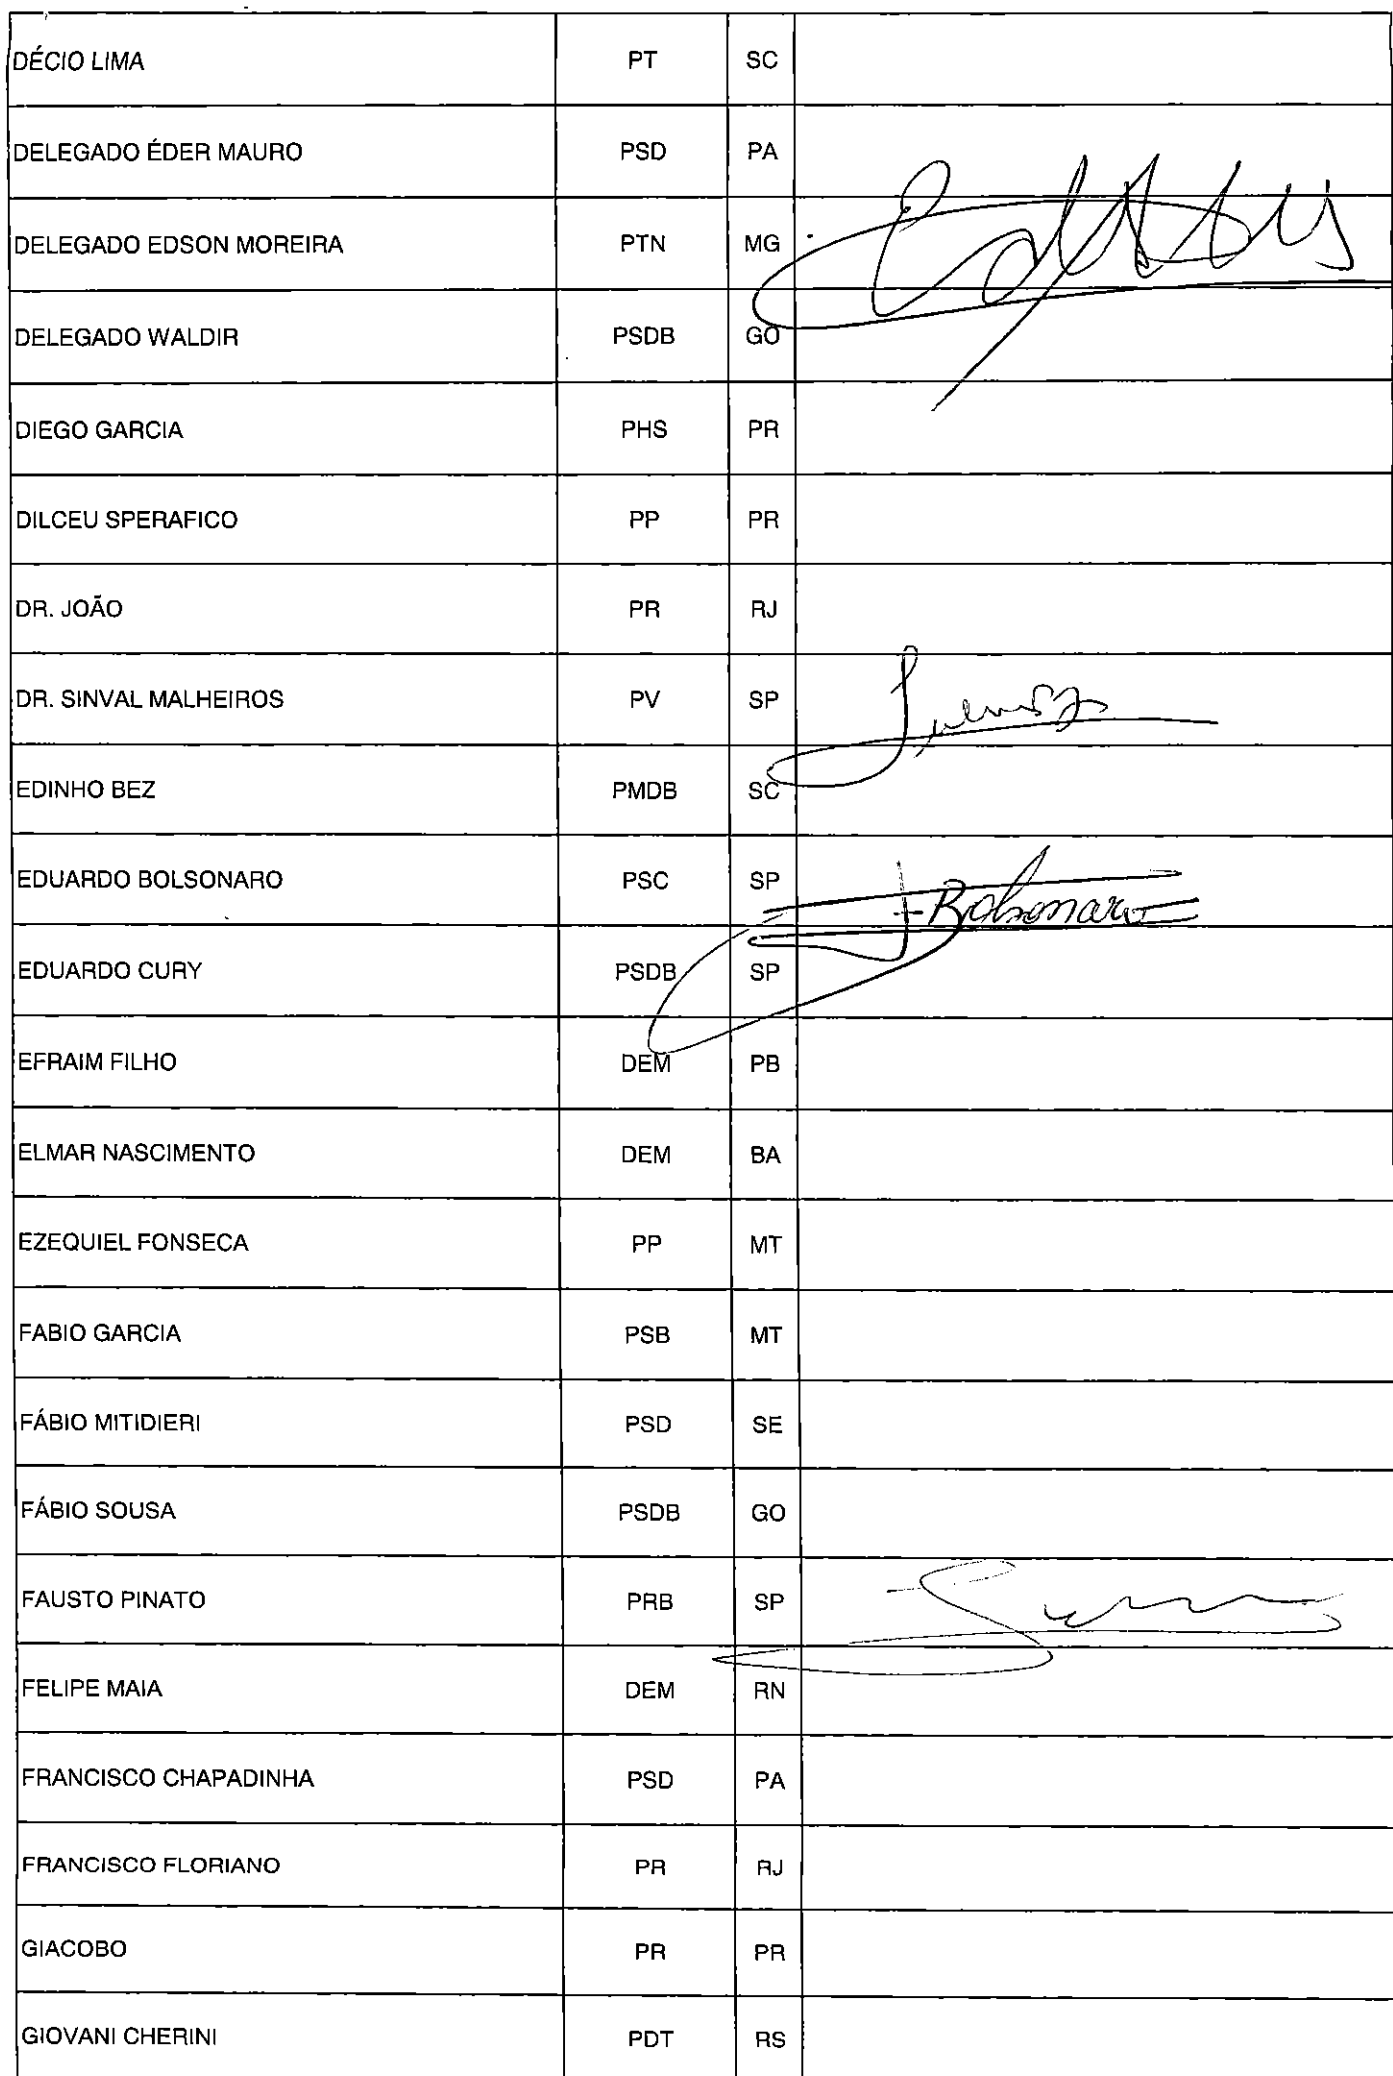 DÉCIO LIMA PT SC
DELEGADO ÉDER MAURO PSD PA
DELEGADO EDSON MOREIRA PTN MG
DELEGADO WALDIR PSDB GO
DIEGO GARCIA PHS PR
DILCEU SPERAFICO PP PR
DR. JOÃO PR RJ
DR. SINVAL MALHEIROS PV SP
EDINHO BEZ PMDB SC
EDUARDO BOLSONARO PSC SP Bolsonaro
EDUARDO CURY PSDB SP
EFRAIM FILHO DEM PB
ELMAR NASCIMENTO DEM BA
EZEQUIEL FONSECA PP MT
FABIO GARCIA PSB MT
FÁBIO MITIDIERI PSD SE
FÁBIO SOUSA PSDB GO
FAUSTO PINATO PRB SP
FELIPE MAIA DEM RN
FRANCISCO CHAPADINHA PSD PA
FRANCISCO FLORIANO PR RJ
GIACOBO PR PR
GIOVANI CHERINI PDT RS